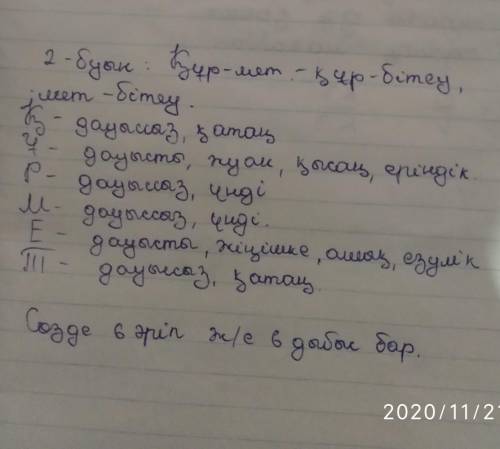 2-буын: Құр-мет. - құр-бітеу,
мет-бітеу.
Қ - дауыссыз, қатаң
Ұ - дауысты, жуан, қысаң, еріндік.
Р - дауыссыз, үнді
М - дауыссыз, үнді.
Е - дауысты, жіңішке, ашық, езулік
Т - дауыссыз, қатаң.
Сөзде 6 әріп ж/е 6 дыбыс бар.
2020/11/21